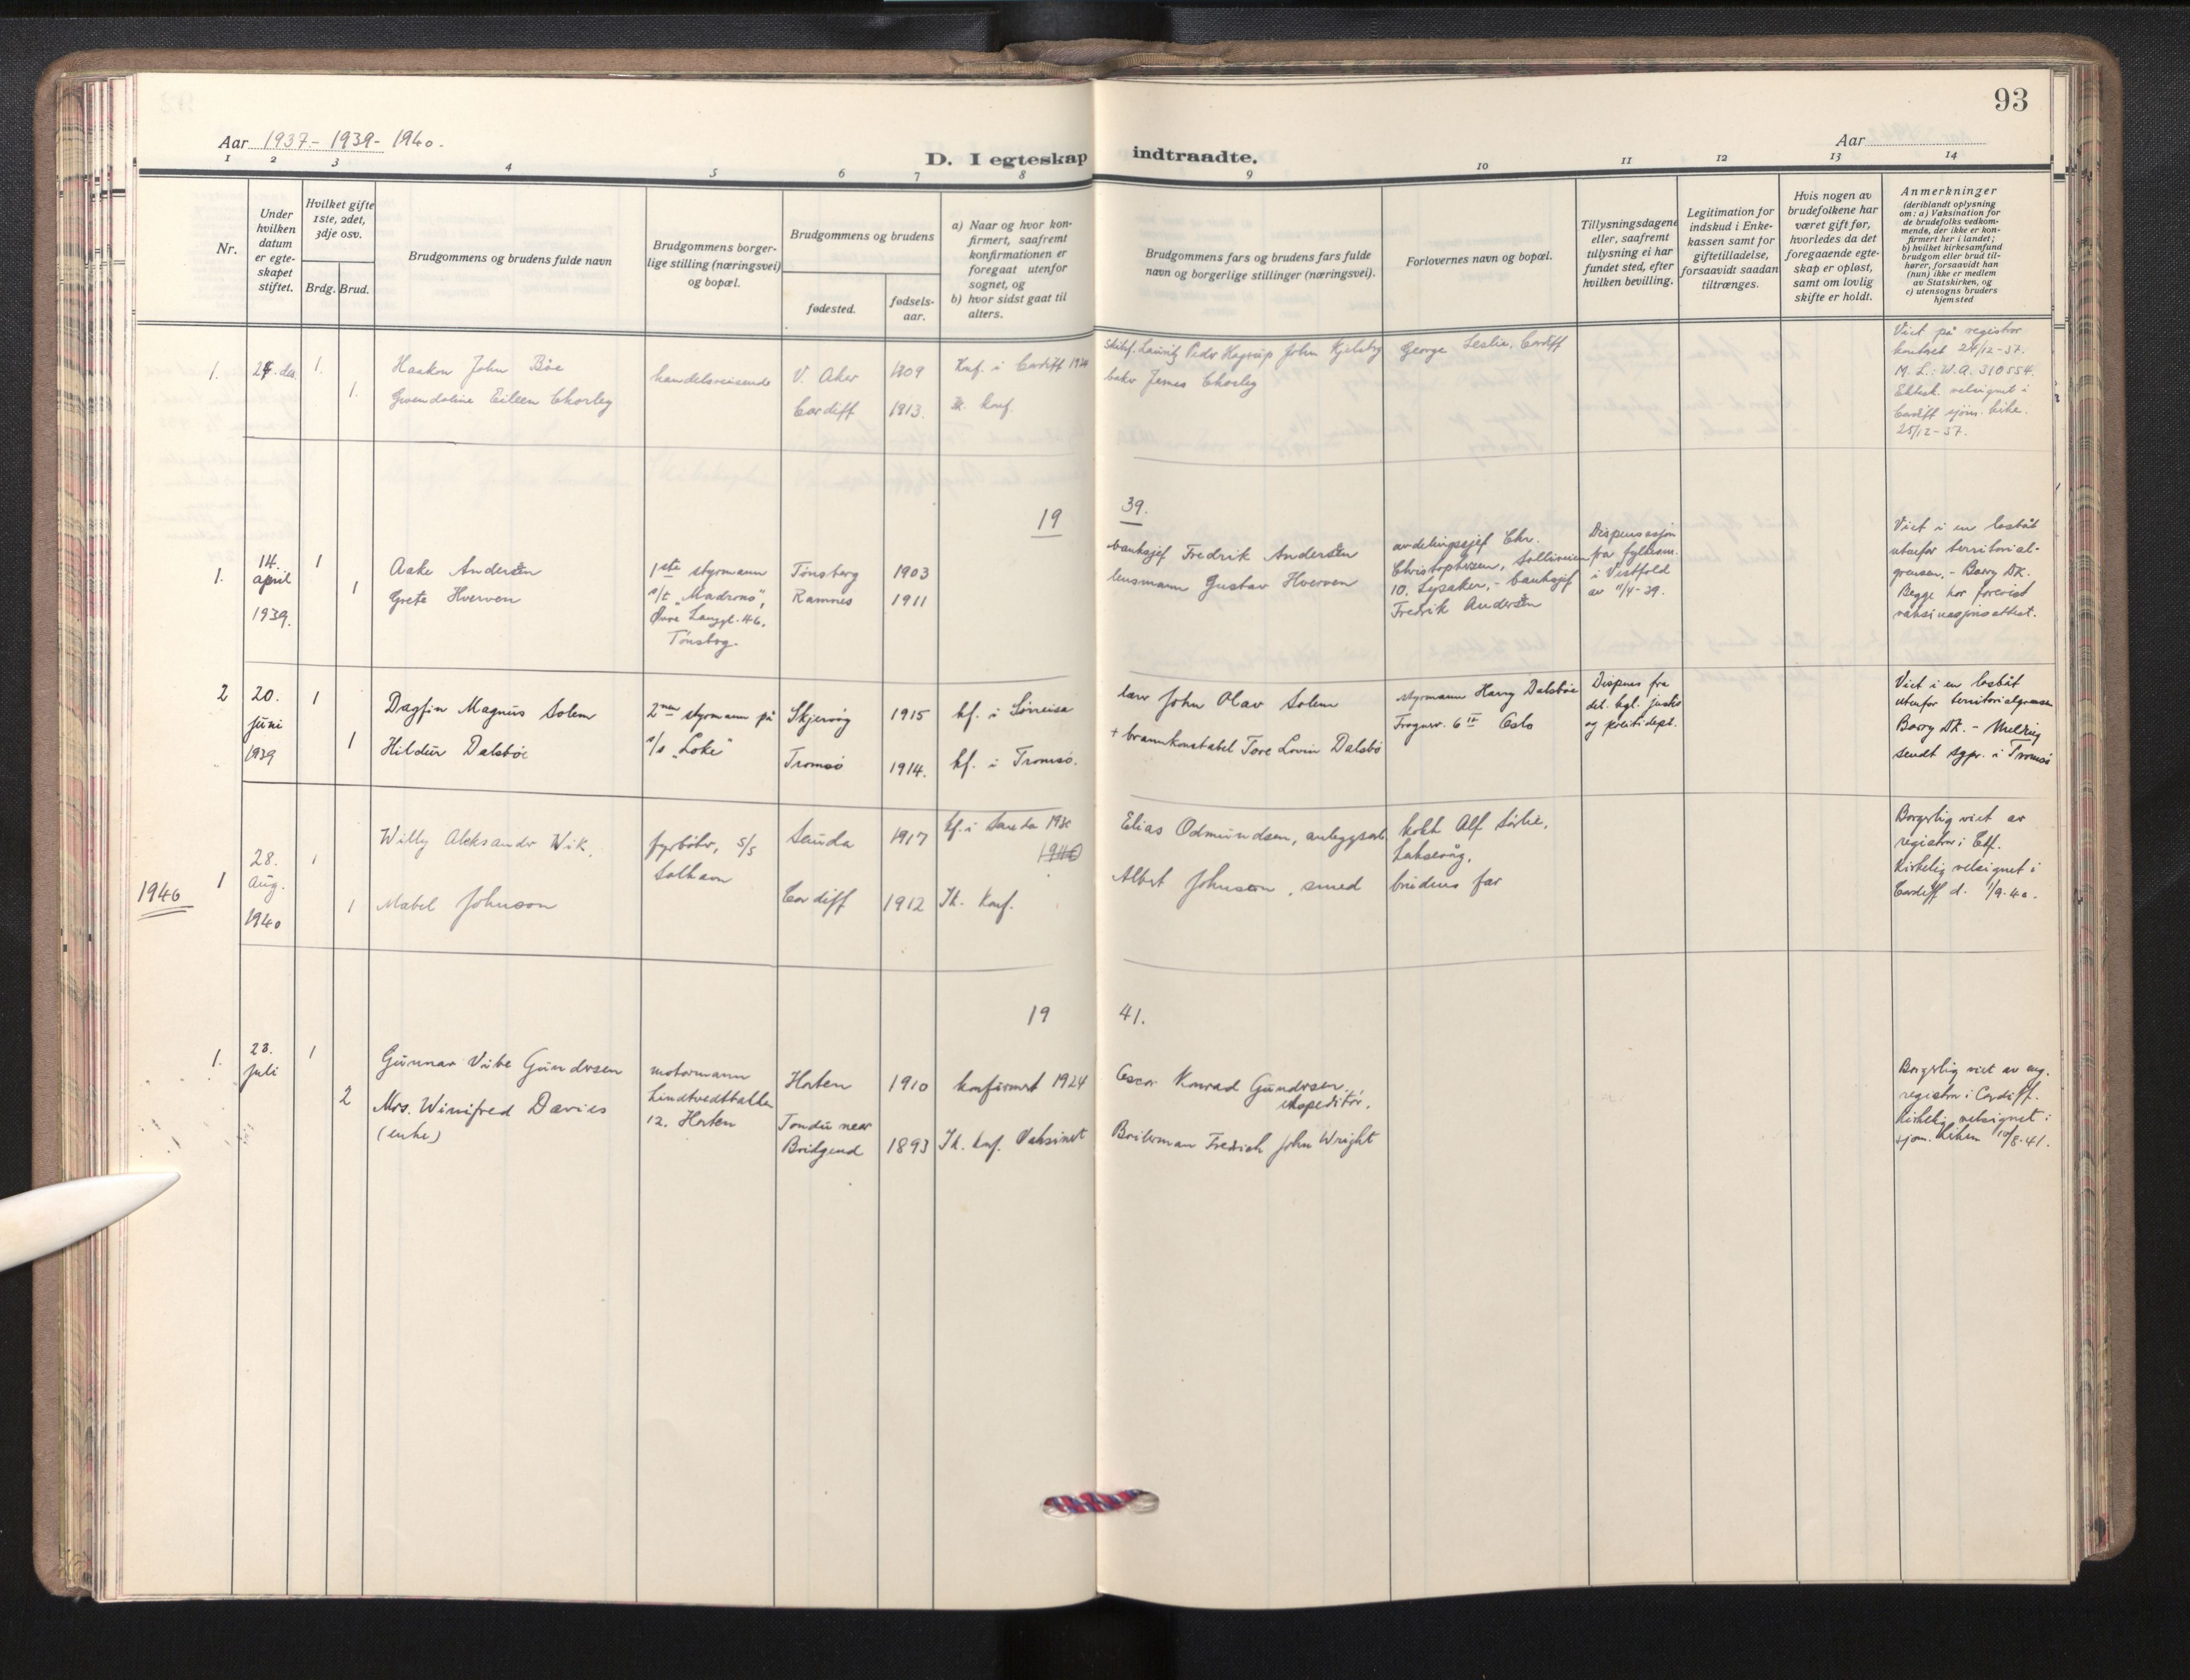 93
Aar 1937.- 1939- 1940.
Aar
D. I egteskap indtraadte.
1 2 3 4 5 6 7 8 9 10 11 12 13 14
Nr.
Under
hvilken
datum
er egte-
skapet
stiftet.
Hvilket gifte
1ste, 2det,
3dje osv.
Brdg. Brud.
Brudgommens og brudens fulde navn
Brudgommens borger-
lige stilling (næringsvei)
og bopæl.
Brudgommens og brudens
fødested.
fødsels-
aar.
a) Naar og hvor kon-
firmert, saafremt
konfirmationen er
foregaat utenfor
sognet, og
b) hvor sidst gaat til
alters.
Brudgommens fars og brudens fars fulde
navn og borgerlige stillinger (næringsvei).
Forlovernes navn og bopæl.
Tillysningsdagene
eller, saafremt
tillysning ei har
fundet sted, efter
hvilken bevilling.
Legitimation for
indskud i Enke-
kassen samt for
giftetilladelse,
forsaavidt saadan
tiltrænges.
Hvis nogen av
brudefolkene har
været gift før,
hvorledes da det
foregaaende egte-
skap er opløst,
samt om lovlig
skifte er holdt.
Anmerkninger
(deriblandt oplysning
om: a) Vaksination for
de brudefolks vedkom-
mende, der ikke er kon-
firmert her i landet;
b) hvilket kirkesamfund
brudgom eller brud til-
hører, forsaavidt han
(hun) ikke er medlem
av Statskirken, og
c) utensogns bruders
hjemsted
1. 24. des. 1.
Haakon John Böe
handelsreisende
V. Aker 1909
Knf. i Cardiff 1924
Lauritz Peder Hagrup John Kjelsby
George Leslie, Cardiff
1.
Gwendoline Eileen Chorley
Cardiff 1913.
Ik. konf.
baker James Chorley
Viet på registrar
kontoret 24/12-37.
M. L.: W.A. 310554.
Ektesk. velsignet i
Cardiff sjöm. kirke.
25/12-37.
19 39.
1. 14.
april
1939.
1
Aake Andersen
1
Grete Hverven
1ste styrmann
s/t "Madrono",
Övre Langgt. 46,
Tönsberg.
Tönsberg 1903
Ramnes 1911
banksjef Fredrik Andersen
lensmann Gustav Hverven
avdelingssjef Chr.
Christophersen, Solliveien
10. Lysaker, - banksjef
Fredrik Andersen
Dispensasjon
fra fylkesm.
i Vestfold
av 11/4-39.
Viet i en losbåt
utenfor territorial-
grensen, - Barry Dk.
Begge har forevist
vaksinasjonsattest.
2 20.
juni
1939
1
Dagfin Magnus Solem
1
Hildur Dalsböe
2nen styrmann på
s/s "Loke"
Skjervöy 1915
Tromsö 1914.
kf. i Sörreisa
kf. i Tromsö.
lærer John Olav Solem
+ brannkonstabel Tore Lovin Dalsbö
styrmann Harry Dalsböe
Frognerv. 6 IV Oslo
Dispens fra
det kgl. justis
og politidept.
Viet i en losbåt
utenfor territorialgrensen
Barry Dk. - Melding
sendt sgpr. i Tromsö
1940
1 28.
Aug.
1940
1
Willy Aleksander Wik.
1
Mabel Johnson
fyrböter, S/S
Solhavn
Sauda 1917
Cardiff 1912
kf. i Sauda
1940
Ik. konf.
Elias Odmundsen, anleggsarb.
Albert Johnson, smed
kokk Alf Sörlie,
Laksevåg,
brudens far
Borgerlig viet av
registrar i Cdf.
Kirkelig velsignet i
Cardiff d. 1/9-40.
19 41.
1. 23.
juli
1
Gunnar Vibe Gundersen
2
Mrs. Winifred Davies
(enke)
motormann
Lindtvedtbakken
12. Horten
Horten 1910
Tondu near
Bridgend 1893
konfirmert 1924
Ik. knf. Vaksinert
Oscar Konrad Gundersen,
ekspeditör.
Boilerman Fredrick John Wright
Borgerlig viet av eng.
registrar i Cardiff.
Kirkelig velsignet i
sjöm. kirken 10/8-41.